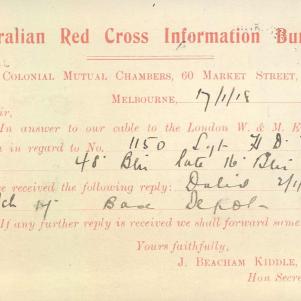 ralian Red Cross Information Bu
Colonial Mutual Chambers, 60 Market Street,
Melbourne, 17/1/18
ir,
In answer to our cable to the London W. & M. E
in regard to No. 1150 Sgt H D
48 Btn late 16 Btn
ve received the following reply: Dated 2/1/
Base Depot
If any further reply is received we shall forward same
Yours faithfully,
J. BEACHAM KIDDLE,
Hon Secre